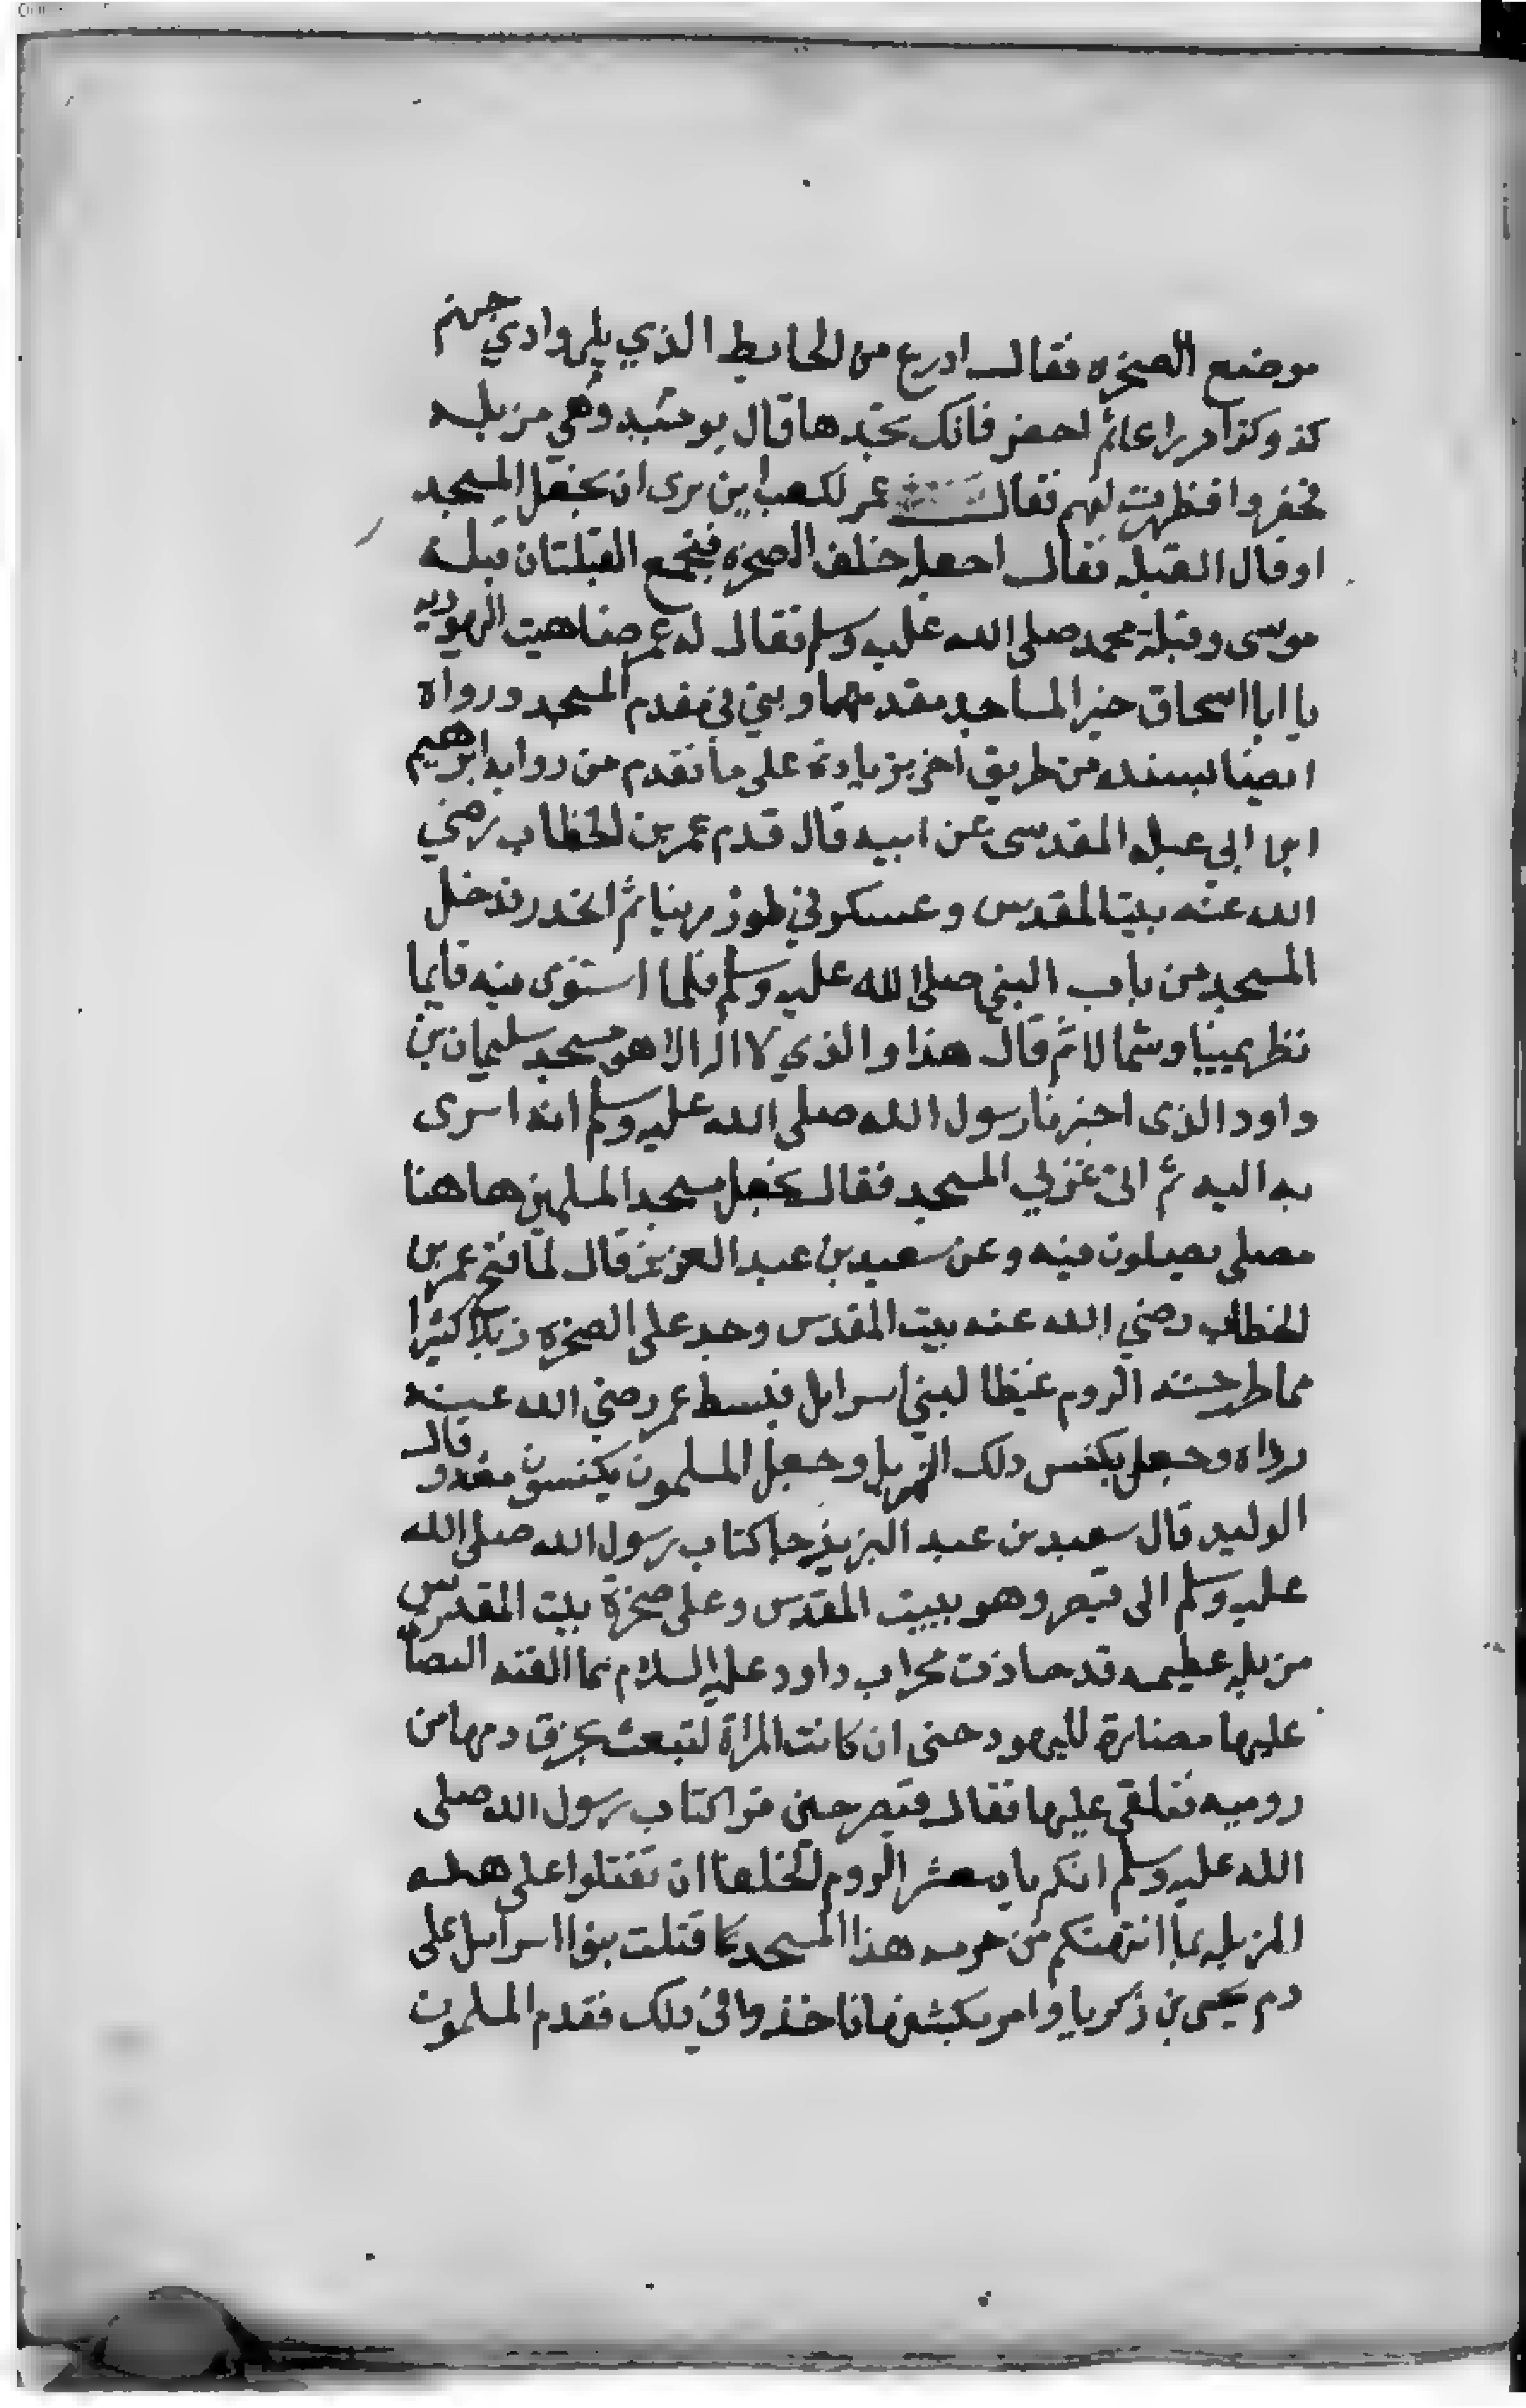 موضع الصخره فقال ادرع من الحايط الذي يلي وادي جهنم
كذ وكذا دراعا ثم احفر فانك تجدها قال يومئيد وهي مزبله
فحفروا فظهرت لهم فقال عمر لكعب اين ترى ان نجعل المسجد
اوقال القبله فقال اجعله خلف الصخره فتجمع القبلتان قبلة
موسى وقبلة محمد صلى الله عليه وسلم فقال له عمر ضاهيت اليهوديه
يا ابا اسحاق خير المساجد مقدمها وبني في مقدم المسجد ورواه
ايضا بسنده من طريق اخر بزيادة على ما تقدم من روايه ابرهيم
ابن ابي عبله المقدسي عن ابيه قال قدم عمر بن الخطاب رضي
الله عنه بيت المقدس وعسكر في طور زيتا ثم انحدر فدخل
المسجد من باب النبي صلى الله عليه وسلم فلما استوى فيه قايما
نظر يمينا وشمالا ثم قال هذا والذي لا اله الا هو مسجد سليمان بن
داود الذي اخبرنا رسول الله صلى الله عليه وسلم انه اسرى
به اليه ثم اتى غربي المسجد فقال نجعل مسجد المسلمين هاهنا
مصلى يصلون فيه وعن سعيد بن عبد العزيز قال لما فتح عمر بن
الخطاب رضي الله عنه بيت المقدس وجد على الصخره زبلا كثيرا
مما طرحته الروم غيظا لبني اسرايل فبسط عمر رضي الله عنه
رداه وجعل يكنس ذلك الزبل وجعل المسلمون يكنسون معه و قال
الوليد قال سعيد بن عبد العزيز جا كتاب رسول الله صلى الله
عليه وسلم الى قيصر وهو ببيت المقدس وعلى صخرة بيت المقدس
مزبله عظيمه قد حاذت محراب داود عليه السلام مما القته النصا
عليها مضارة لليهود حتى ان كانت المراة لتبعث بخرق دمها من
روميه فتلقى عليها فقال قيصر حين قرا كتاب رسول الله صلى
الله عليه وسلم انكم يا معشر الروم لخلقا ان تقتلوا على هذه
المزبله بما انتهكتم من حرمه هذا المسجد كما قتلت بنوا اسرايل على
دم يحيى بن زكريا وامر بكشفها فاخذوا في ذلك فقدم المسلمون